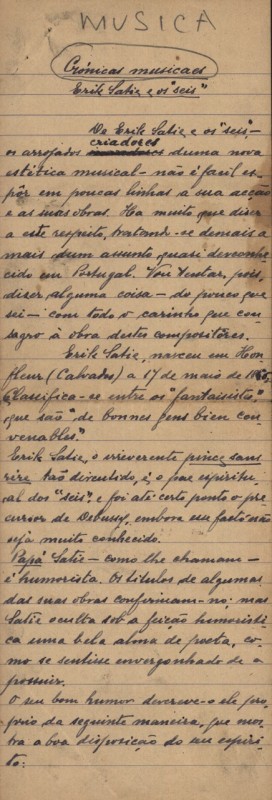 MUSICA
Crónicas musicaes
Erik Satie e os "seis"
De Erik Satie e os "seis" —
criadores
os arrojados duma nova
estética musical — não é facil ex-
pôr em poucas linhas a sua acção
e as suas obras. Ha muito que dizer
a este respeito, tratando-se demais a
mais dum assunto quasi desconhe-
cido em Portugal. Vou tentar, pois,
dizer alguma coisa — do pouco que
sei — com todo o carinho que con-
sagro à obra destes compositôres.
Erik Satie, nasceu em Hon-
fleur (Calvados) a 17 de maio de
Classifica-se entre os "fantaisistes"
que são "de bonnes gens bien con-
venables".
Erik Satie, o irreverente pince sans
rire tão divertido, é o pae espiritu-
al dos "seis" e foi até certo ponto o pre-
cursor de Debussy, embora este facto não
seja muito conhecido.
Papá Satie — como lhe chamam —
é humorista. Os titulos de algumas
das suas obras confirmam-no; mas
Satie oculta sob a feição humoristi-
ca uma bela alma de poeta, co-
mo se sentisse envergonhado de a
possuir.
O seu bom humor descreve-o ele pro-
prio da seguinte maneira, que mos-
tra a boa disposição do seu espiri-
to: